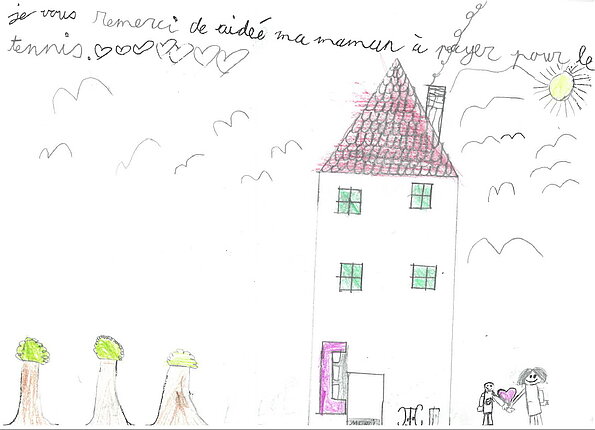 je vous remerci de aideé ma maman à payer pour le
tennis.